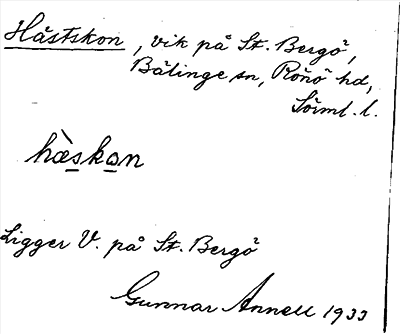 Håstskon, vik på St. Bergö,
Bälinge sn, Rönö hd,
Sörml. l.
hæ̀skon
Ligger V. på St. Bergö
Gunnar Annell 1933